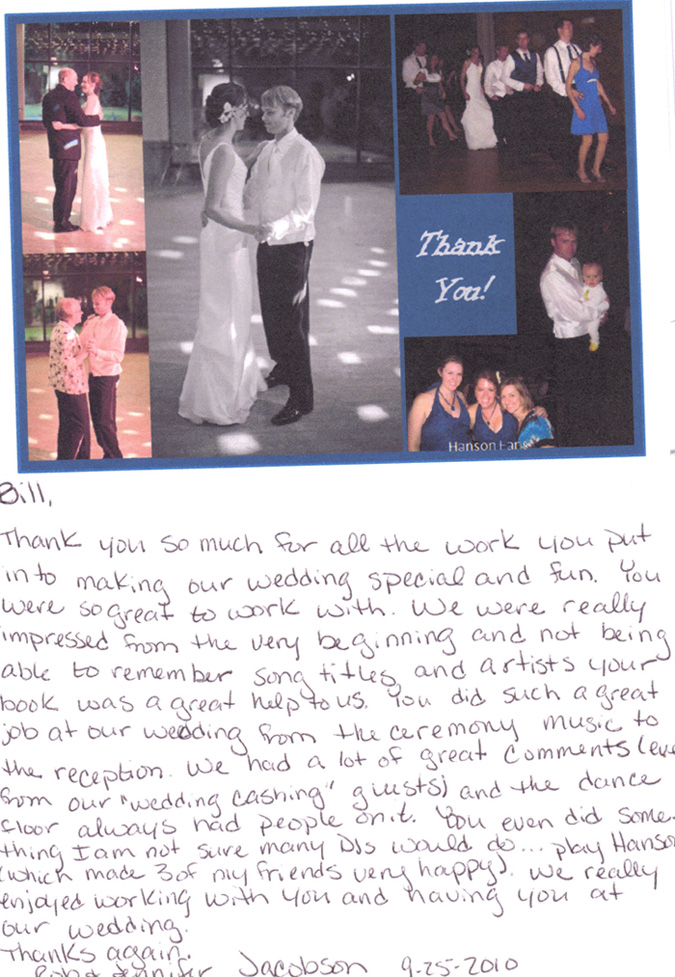 Thank
You!
Hanson Fans
Bill,
Thank you so much for all the work you put
into making our wedding special and fun. You
were so great to work with. We were really
impressed from the very beginning and not being
able to remember song titles and artists your
book was a great help to us. You did such a great
job at our wedding from the ceremony music to
the reception. We had a lot of great comments (eve
from our "wedding cashing" guests) and the dance
floor always had people on it. You even did some-
thing I am not sure many DJs would do... play Hanson
(which made 3 of my friends very happy). We really
enjoyed working with you and having you at
our wedding.
Thanks again.
Rob & Jennifer Jacobson 9-25-2010